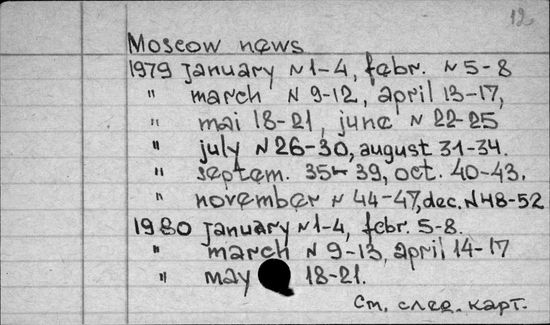 12
Moscow news
1979 january N 1-4, febr. N 5-8
" march N 9-12, april 13-17,
" mai 18-21, june N 22-25
" july N 26-30, august 31-34.
" septem. 35-39, oct. 40-43.
" november N 44-47, dec. N 48-52
1980 january N 1-4, febr. 5-8.
" march N 9-13, april 14-17
" may 18-21.
См. след. карт.